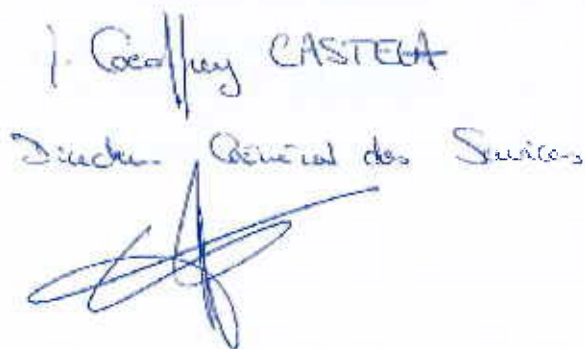 J. Geoffrey CASTELA
Directeur Général des Services